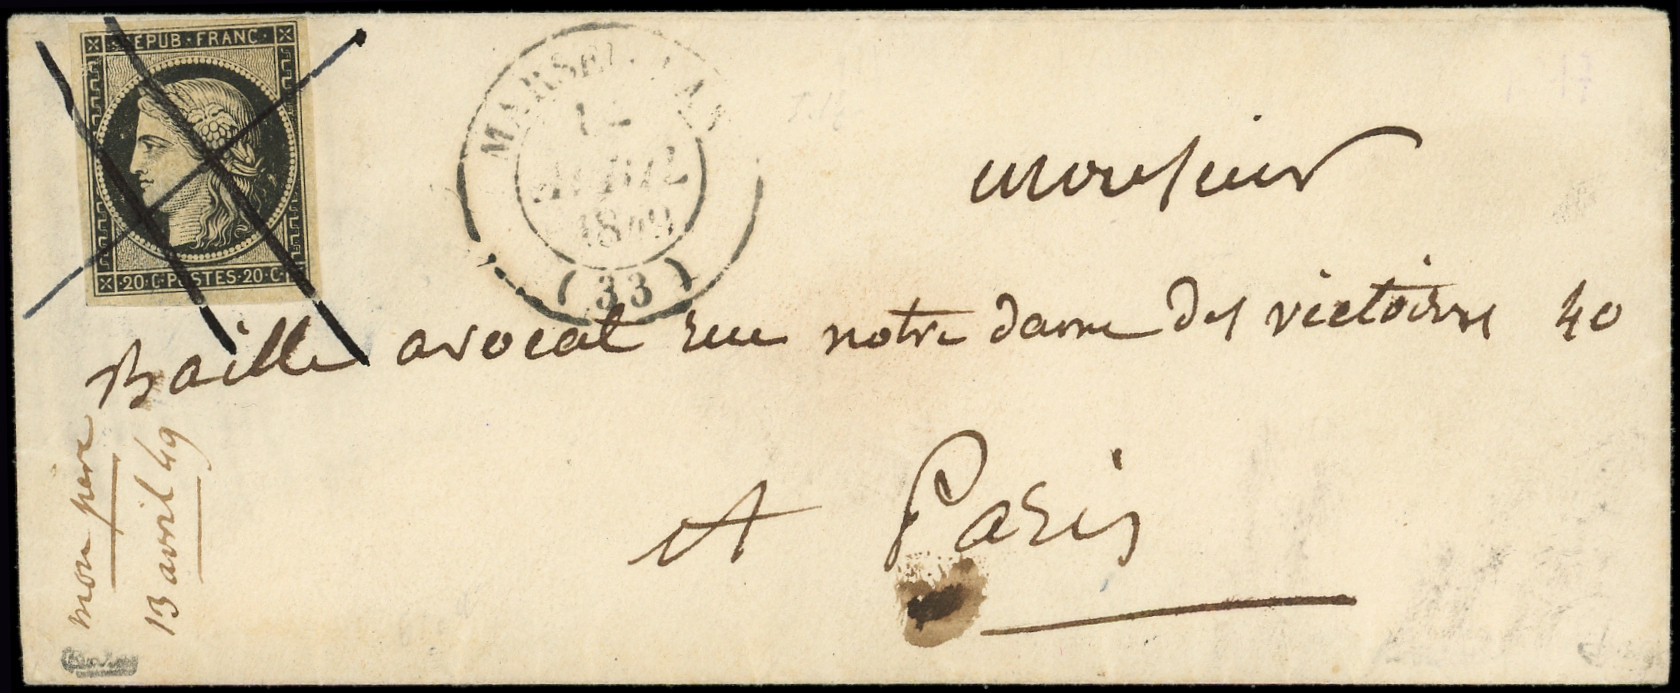 REPUB · FRANC ·
20 · C · POSTES · 20 · C ·
12
AVRIL
1849
(33)
monsieur
Baille avocat rue notre dame des victoires 40
A Paris
mon père
13 avril 49